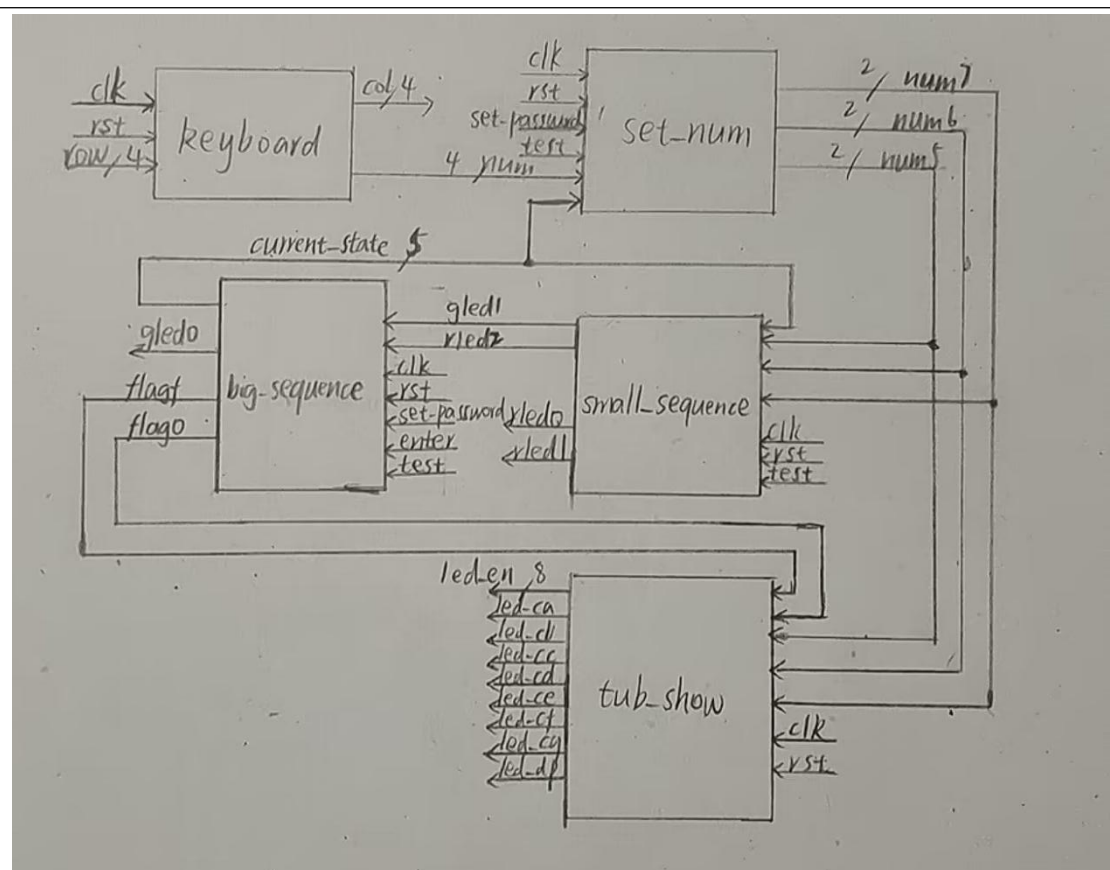 clk
rst
row/4
keyboard
col/4
4 num
clk
rst
set-password
test
set_num
2/ num7
2/ num6
2/ num5
current-state 5
gled0
flagf
flag0
big-sequence
gled1
rled2
clk
rst
set-password
enter
test
rled0
rled1
small_sequence
clk
rst
test
led-en 8
led-ca
led-cb
led-cc
led-cd
led-ce
led-cf
led-cg
led-dp
tub_show
clk
rst